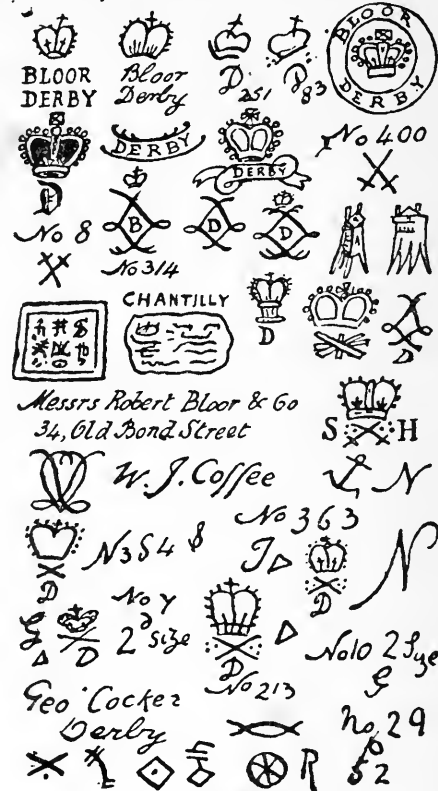 BLOOR
DERBY
Bloor
Derby
D
251
D
83
BLOOR
DERBY
D
No 8
DERBY
DERBY
No 400
B
No 314
D
D
CHANTILLY
D
D
Messrs Robert Bloor & Co
34, Old Bond Street
S H
W. J. Coffee
N
D
N354
No 363
J
D
N
G
D
No Y
2d Size
D
No 213
No 10 2 Size
G
Geo Cocker
Derby
No 29
52
R